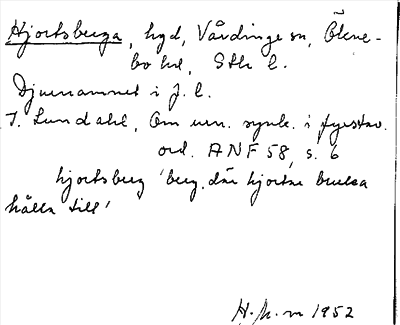 Hjortsberga, hgd, Vårdinge sn, Ökne-
bo hd, Sthl l.
Djurnamnet i f. l.
I. Lundahl, Om urn. synk. i fyrstav.
ord. ANF 58, s. 6
hjortsberg 'berg, där hjortar bruka
hålla till'
1952